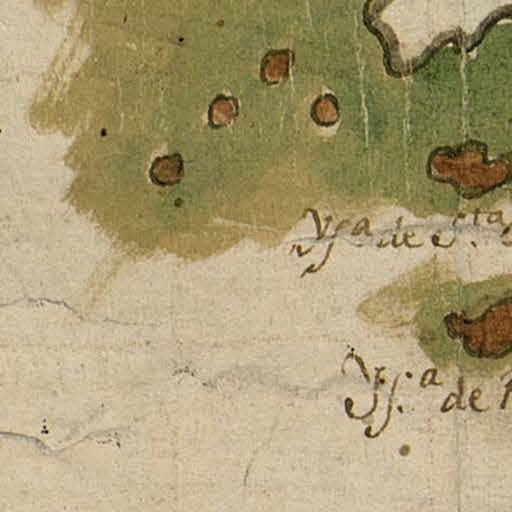 Ysª de Sta
Ysª de